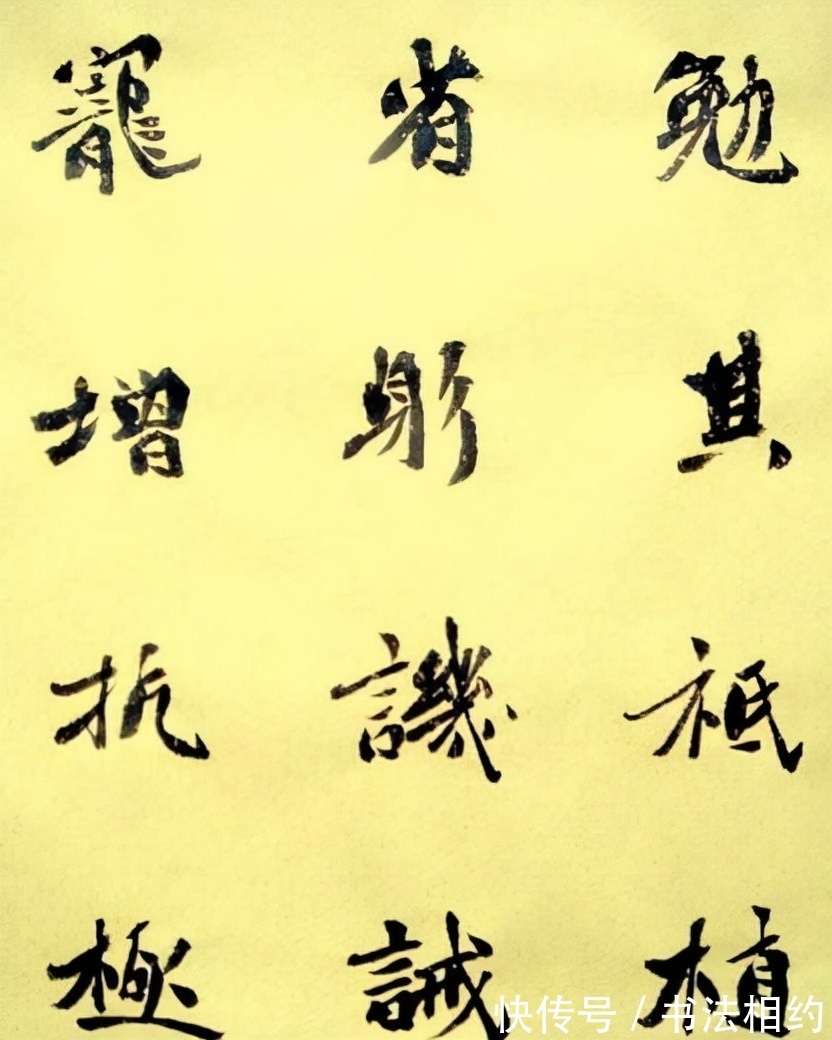 勉其祗植
省躬譏誡
寵增抗極
快传号 / 书法相约